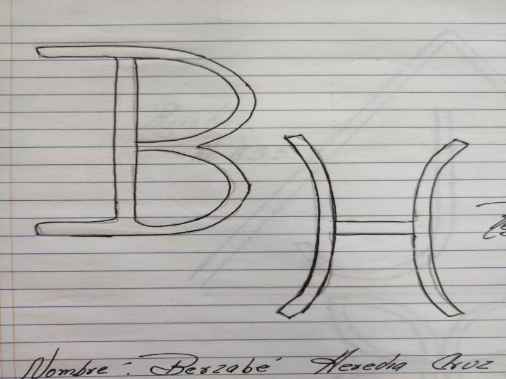 B H
Nombre: Berzabé Heredia Cruz